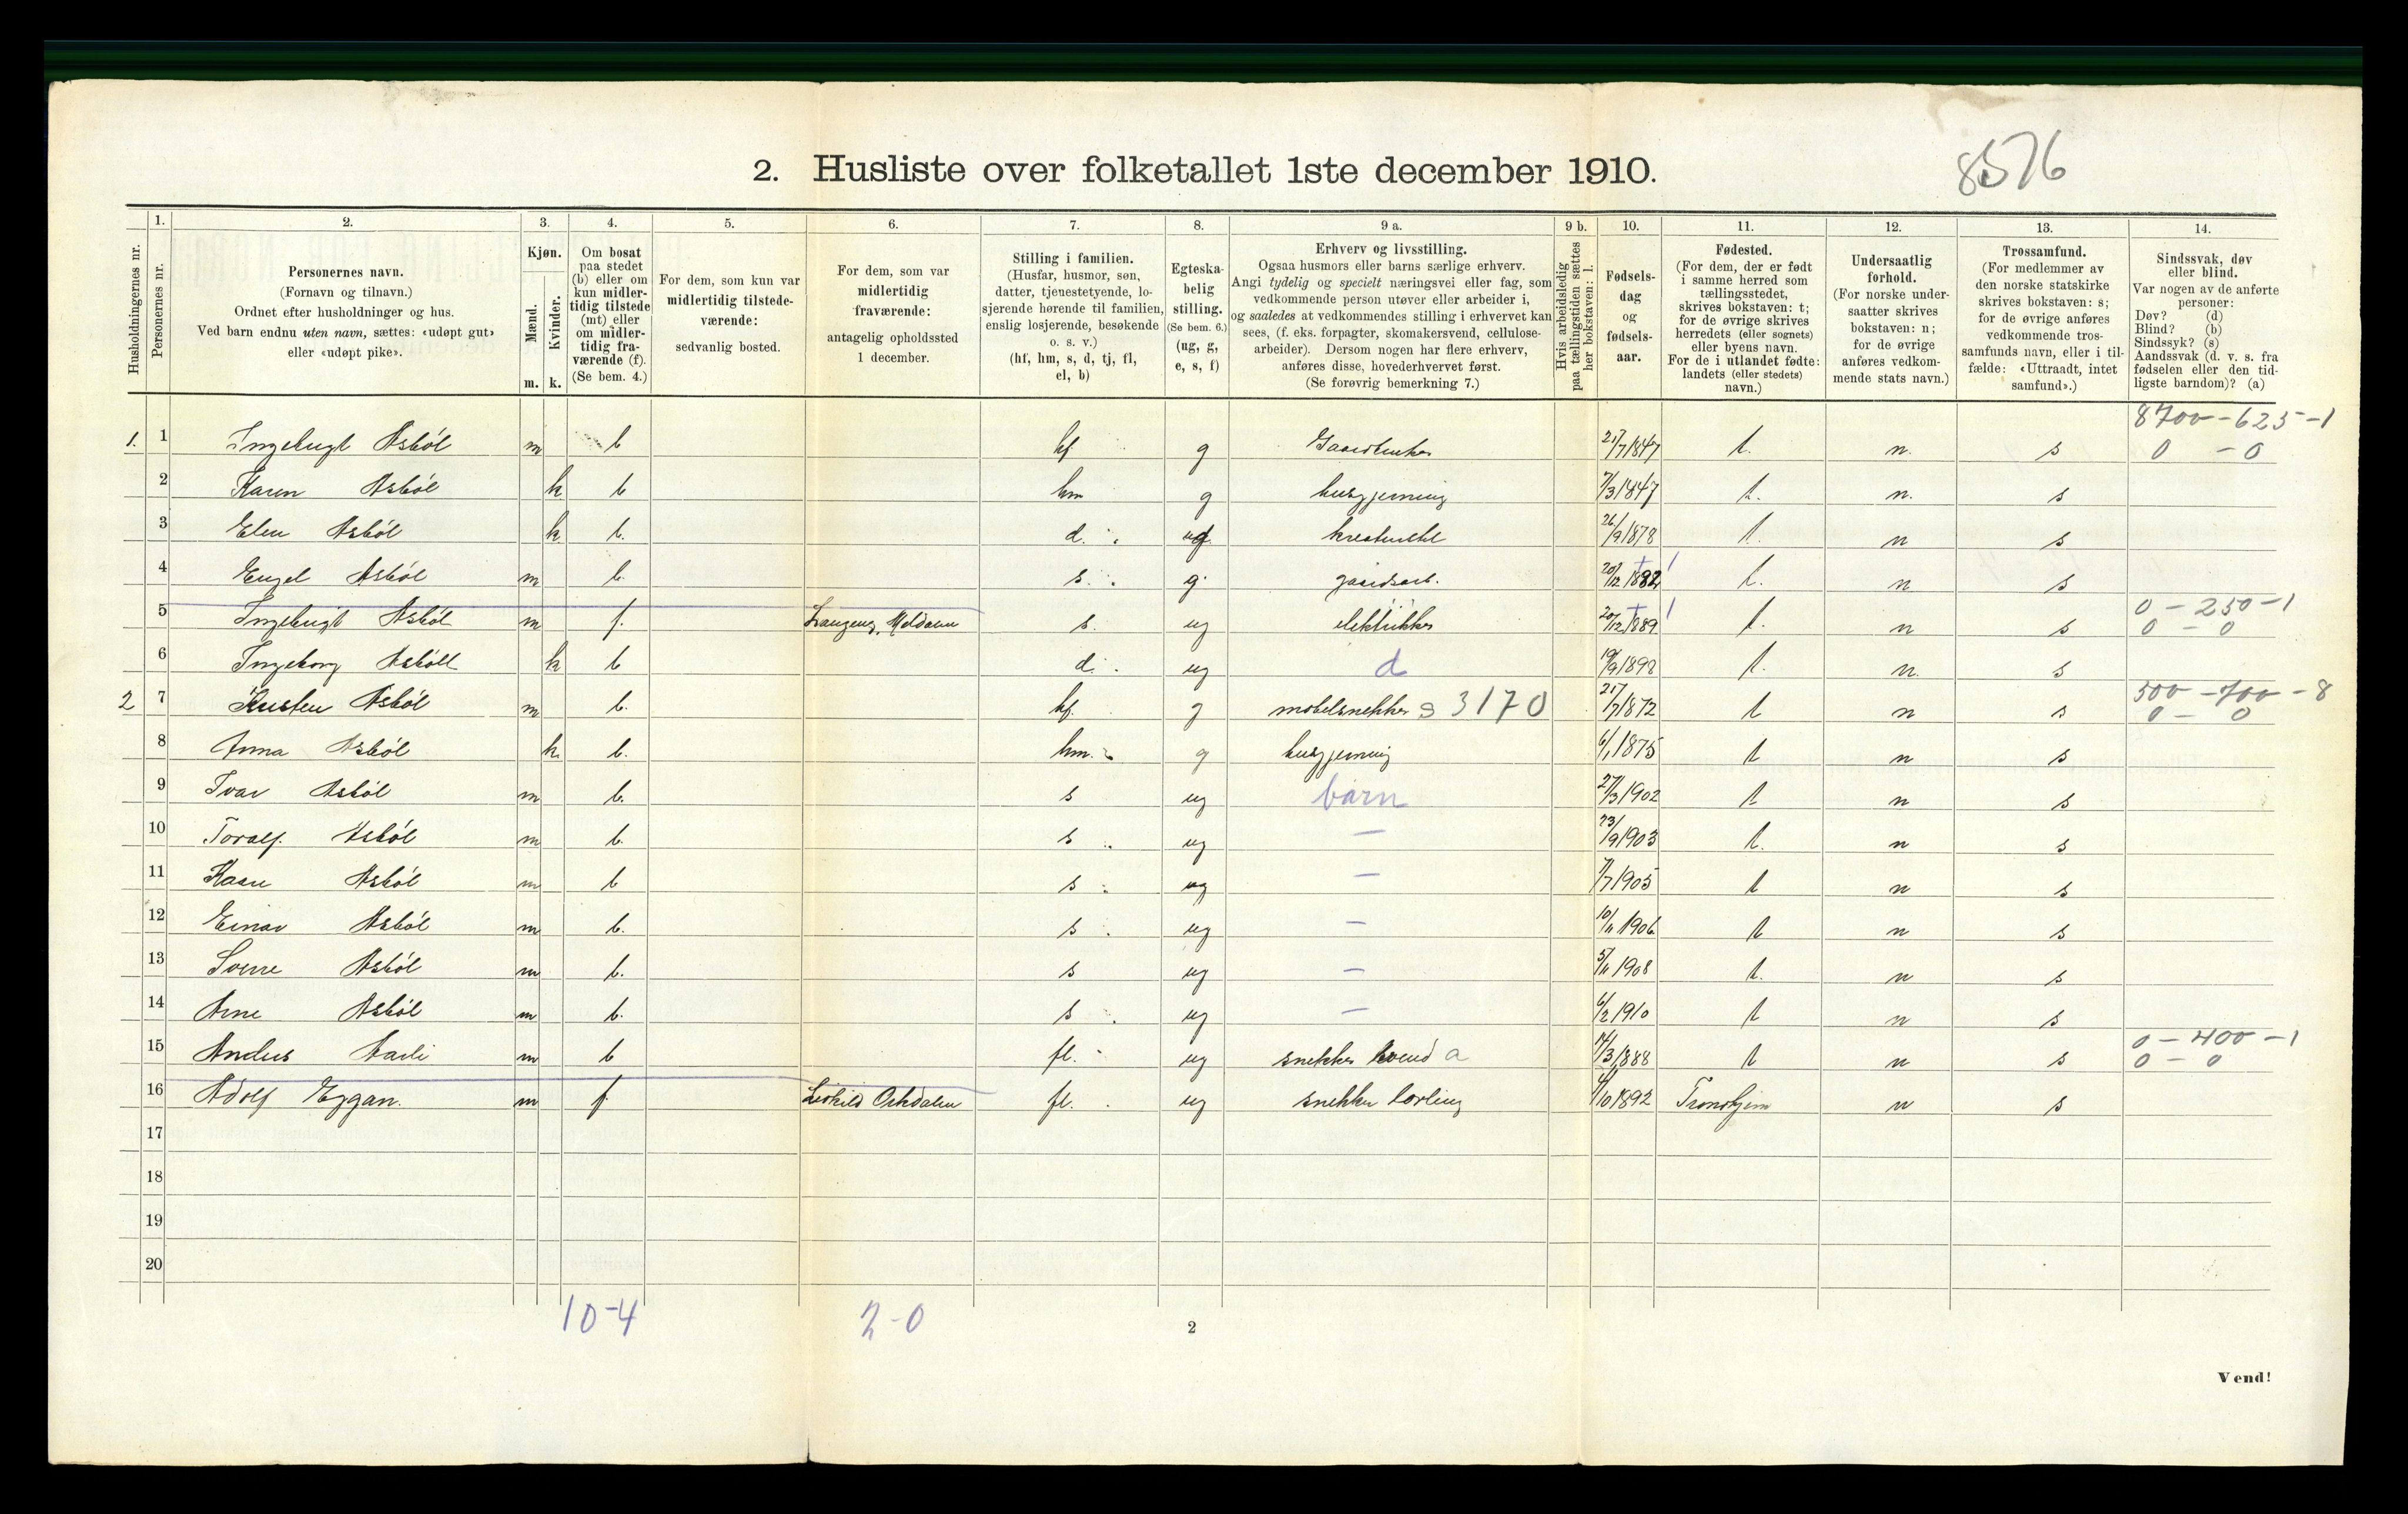 2. Husliste over folketallet 1ste december 1910.
8576
Husholdningernes nr.
1. Personernes nr.
2. Personernes navn.
(Fornavn og tilnavn.)
Ordnet efter husholdninger og hus.
Ved barn endnu uten navn, sættes: «udøpt gut»
eller «udøpt pike».
3. Kjøn.
Mænd. m.
Kvinder. k.
4. Om bosat
paa stedet
(b) eller om
kun midler-
tidig tilstede
(mt) eller
om midler-
tidig fra-
værende (f).
(Se bem. 4.)
5. For dem, som kun var
midlertidig tilstede-
værende:
sedvanlig bosted.
6. For dem, som var
midlertidig
fraværende:
antagelig opholdssted
1 december.
7. Stilling i familien.
(Husfar, husmor, søn,
datter, tjenestetyende, lo-
sjerende hørende til familien,
enslig losjerende, besøkende
o. s. v.)
(hf, hm, s, d, tj, fl,
el, b)
8. Egteska-
belig
stilling.
(Se bem. 6.)
(ug, g,
e, s, f)
9 a. Erhverv og livsstilling.
Ogsaa husmors eller barns særlige erhverv.
Angi tydelig og specielt næringsvei eller fag, som
vedkommende person utøver eller arbeider i,
og saaledes at vedkommendes stilling i erhvervet kan
sees, (f. eks. forpagter, skomakersvend, cellulose-
arbeider). Dersom nogen har flere erhverv,
anføres disse, hovederhvervet først.
(Se forøvrig bemerkning 7.)
9 b. Hvis arbeidsledig
paa tællingstiden sættes
her bokstaven: l.
10. Fødsels-
dag
og
fødsels-
aar.
11. Fødested.
(For dem, der er født
i samme herred som
tællingsstedet,
skrives bokstaven: t;
for de øvrige skrives
herredets (eller sognets)
eller byens navn.
For de i utlandet fødte:
landets (eller stedets)
navn.)
12. Undersaatlig
forhold.
(For norske under-
saatter skrives
bokstaven: n;
for de øvrige
anføres vedkom-
mende stats navn.)
13. Trossamfund.
(For medlemmer av
den norske statskirke
skrives bokstaven: s;
for de øvrige anføres
vedkommende tros-
samfunds navn, eller i til-
fælde: «Uttraadt, intet
samfund».)
14. Sindssvak, døv
eller blind.
Var nogen av de anførte
personer:
Døv? (d)
Blind? (b)
Sindssyk? (s)
Aandssvak (d. v. s. fra
fødselen eller den tid-
ligste barndom)? (a)
8700-625-1
1. 1 Ingebrigt Asbøl m b hf g Gaardbruker 21/7 1847 t. n. s 0 - 0
2 Karen Asbøl k b hm g husgjerning 7/3 1847 t. n. s
3 Elen Asbøl k b. d. ug kreaturstel 26/9 1878 t. n s
4 Engel Asbøl m b. s. g. gaardsarb. 20/12 1882 t. n s
0 - 250 - 1
5 Ingebrigt Asbøl m f. Meldalen s. ug elektriker 20/12 1889 t. n s 0 - 0
6 Ingeborg Asbøll k b d. ug d 19/9 1898 t. n. s
500 - 700 - 8
2 7 Asbøl m b. hf. g møbelsnekker s 3170 21/7 1872 t n s 0 - 0
8 Anna Asbøl k. b. hm. g husgjerning 6/1 1875 t n s
9 Ivar Asbøl m b. s ug barn 27/3 1902 t n s
10 Toralf. Asbøl m b. s ug — 23/9 1903 t. n s
11 Kaare Asbøl m b s ug — 7/7 1905 t n s
12 Einar Asbøl m b. s ug — 10/11 1906 t n s
13 Sverre Asbøl m b. s ug — 5/11 1908 t. n s
14 Arne Asbøl m b. s ug — 6/2 1910 t n s
0 - 400 - 1
15 Anders m b fl. ug snekker svend a 14/3 1888 t n s 0 - 0
16 Adolf Eggan. m f. Orkdalen fl. ug snekker lærling /10 1892 Trondhjem n s
17
18
19
20
10-4 2-0
2
Vend!